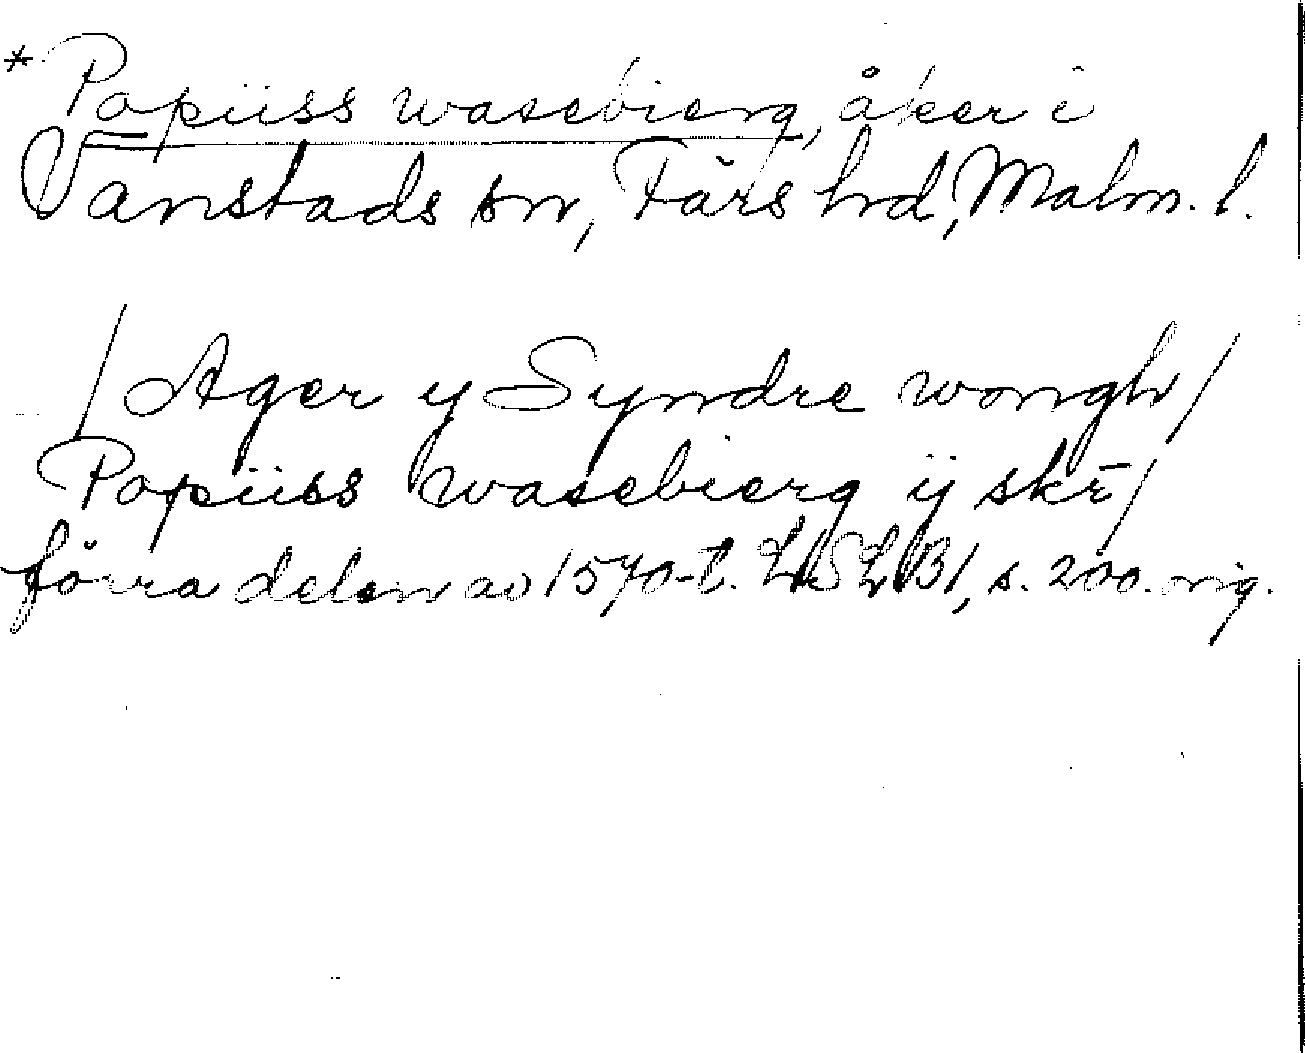 * Popüss wasebierg, åker i
Vanstads sn, Färs hd, Malm. l.
/ Ager y Syndre wongh /
Popüss wasebierg ÿ skr̄ /
förra delen av 1570-t. LSLB1, s. 200. orig.